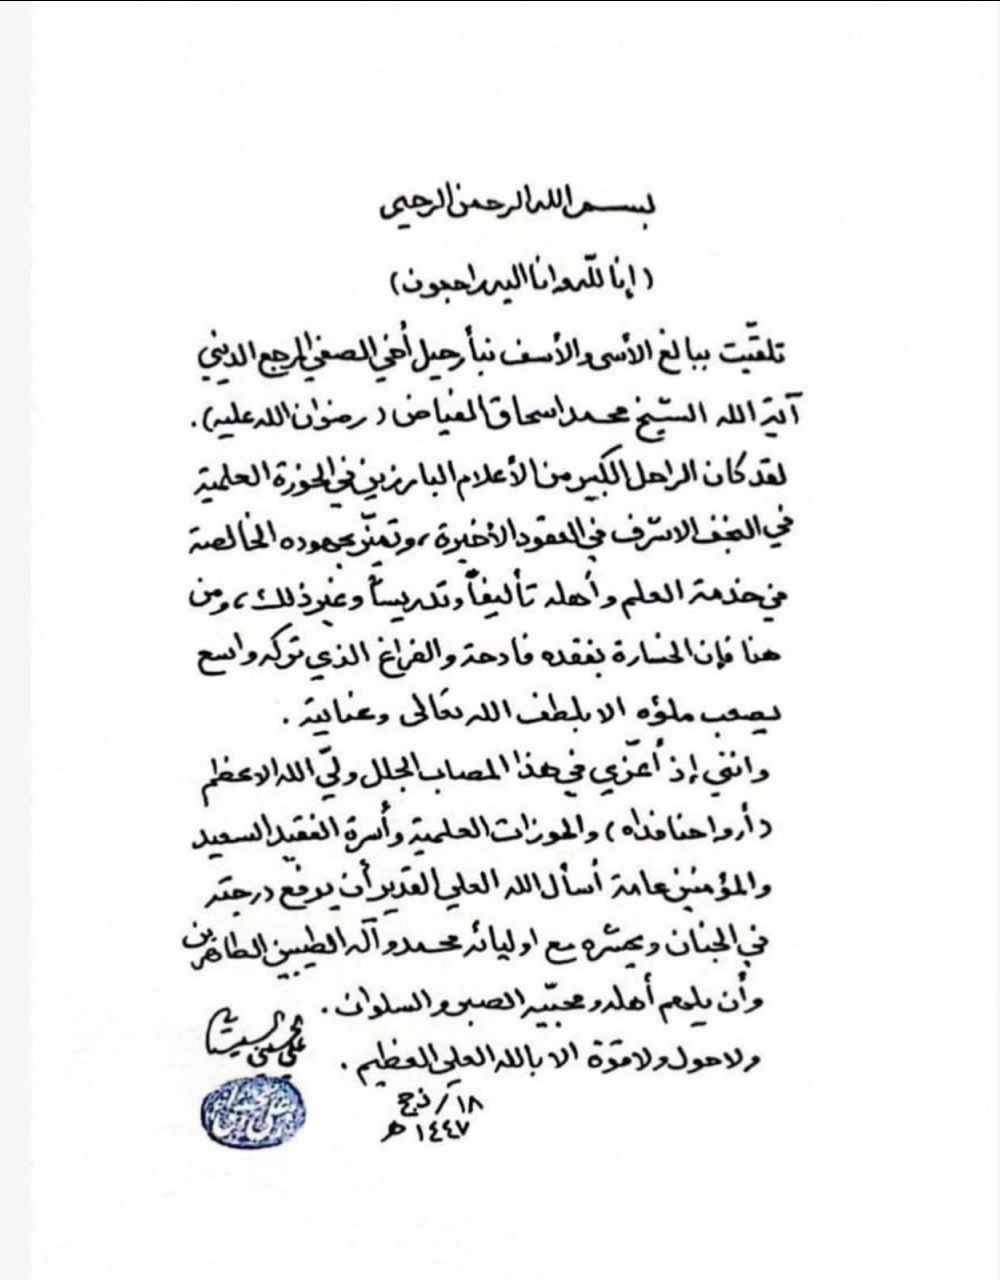 بسم الله الرحمن الرحيم
(إنا لله وانا اليه راجعون)
تلقّيت ببالغ الأسى والأسف نبأ رحيل أخي الصفي المرجع الديني
آية الله الشيخ محمد اسحاق الفياض (رضوان الله عليه).
لقد كان الراحل الكبير من الأعلام البارزين في الحوزة العلمية
في النجف الاشرف في العقود الأخيرة، وتميّز بجهوده الخالصة
في خدمة العلم وأهله تأليفاً وتدريساً وغير ذلك، ومن
هنا فإن الخسارة بفقده فادحة والفراغ الذي تركه واسع
يصعب ملؤه الا بلطف الله تعالى وعنايته.
وانني إذ أعزّي في هذا المصاب الجلل وليّ الله الاعظم
(أرواحنا فداه) والحوزات العلمية وأسرة الفقيد السعيد
والمؤمنين عامة أسأل الله العلي القدير أن يرفع درجته
في الجنان ويحشره مع اوليائه محمد وآله الطيبين الطاهرين
وأن يلهم أهله ومحبّيه الصبر والسلوان.
ولا حول ولا قوة الا بالله العلي العظيم.
علي الحسيني السيستاني
١٨/ذح
١٤٤٧هـ